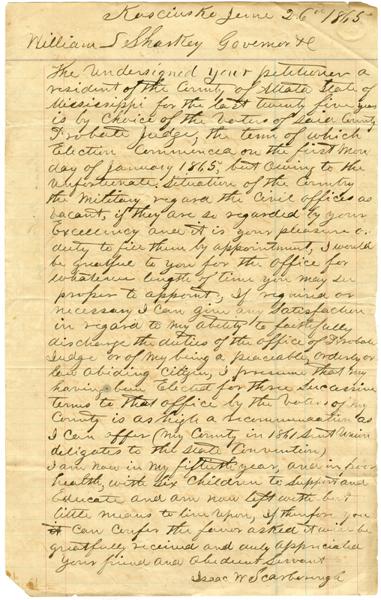 Kosciusko June 26th 1865
William L Sharkey Governor &c
The Undersigned your petitioner a
resident of the County of Attala State of
Mississippi for the last twenty five years
is by choice of the Voters of said County
Probate Judge, the term of which
Election Commenced on the first Mon
day of January 1865, but Owing to the
Unfortunate Situation of the Country
the Military regard the Civil offices as
Vacant, if they are so regarded by your
Excellency and it is your pleasure or
duty to fill them by appointment, I would
be grateful to you for the office for
whatever length of time you may see
proper to appoint, If required or
necessary I can give any Satisfaction
in regard to my Ability to faithfully
discharge the duties of the office of Probate
Judge or of my being a peaceable orderly or
law abiding Citizen, I presume that my
having been Elected for three Successive
terms to that office by the Voters of my
County is as high a recommendation as
I can offer (My County in 1861 Sent Union
deligates to the State Convention)
I am now in my fiftieth year, and in poor
health, with Six Children to Support and
Educate and am now left with but
little means to live upon, If therefore you
can confer the favor asked it will be
greatfully received and duly appreciated
Your friend and Obedient Servant
Isaac W Scarborough